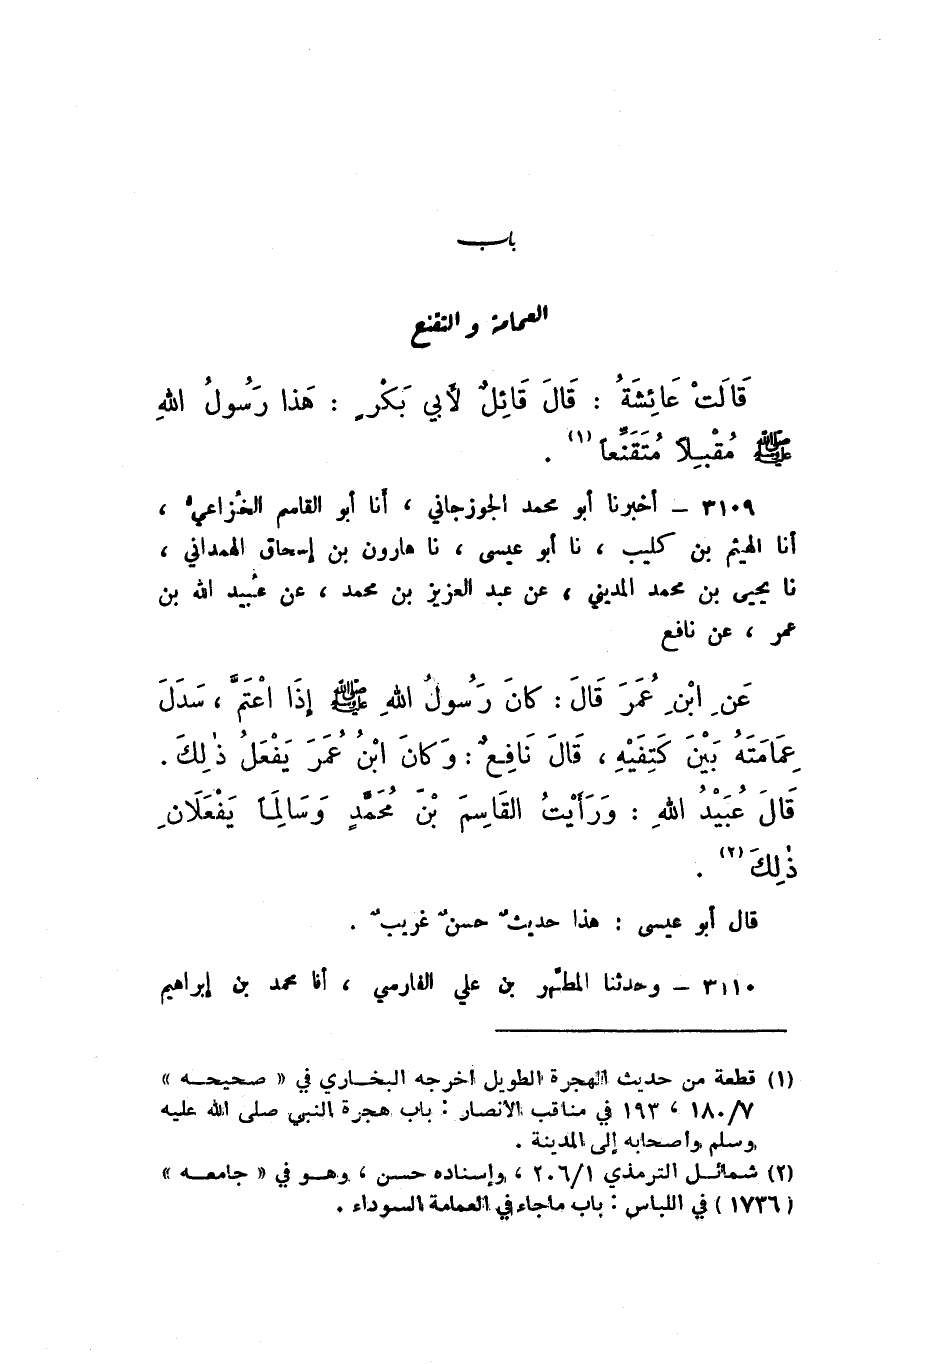 باب
العمامة و التقنع
قَالَتْ عَائِشَةُ : قَالَ قَائِلٌ لأَبي بَكْرٍ : هَذا رَسُولُ اللهِ
ﷺ مُقْبِلاً مُتَقَنِّعاً (١) .
٣١٠٩ – أخبرنا أبو محمد الجوزجاني ، أَنا أبو القاسم الخُزاعيُ ،
أنا الهيثم بن كليب ، نا أبو عيسى ، نا هارون بن إسحاق الهمداني ،
نا يحيى بن محمد المديني ، عن عبد العزيز بن محمد ، عن عُبيد الله بن
عمر ، عن نافع
عَنِ ابْنِ عُمَرَ قَالَ : كانَ رَسُولُ اللهِ ﷺ إِذَا اعْتَمَّ ، سَدَلَ
عِمَامَتَهُ بَيْنَ كَتِفَيْهِ ، قَالَ نَافِعٌ : وَكانَ ابْنُ عُمَرَ يَفْعَلُ ذٰلِكَ .
قَالَ عُبَيْدُ اللهِ : وَرَأَيْتُ القَاسِمَ بْنَ مُحَمَّدٍ وَسَالِمَاً يَفْعَلَانِ
ذٰلِكَ (٢) .
قال أبو عيسى : هذا حديثٌ حسنٌ غريبٌ .
٣١١٠ – وحدثنا المطهَّر بن علي الفارسي ، أنا محمد بن إبراهيم
(١) قطعة من حديث الهجرة الطويل أخرجه البخاري في « صحيحه »
١٨٠/٧ ، ١٩٣ في مناقب الأنصار : باب هجرة النبي صلى الله عليه
وسلم وأصحابه إلى المدينة .
(٢) شمائل الترمذي ٢٠٦/١ ، وإسناده حسن ، وهو في « جامعه »
( ١٧٣٦ ) في اللباس : باب ماجاء في العمامة السوداء .